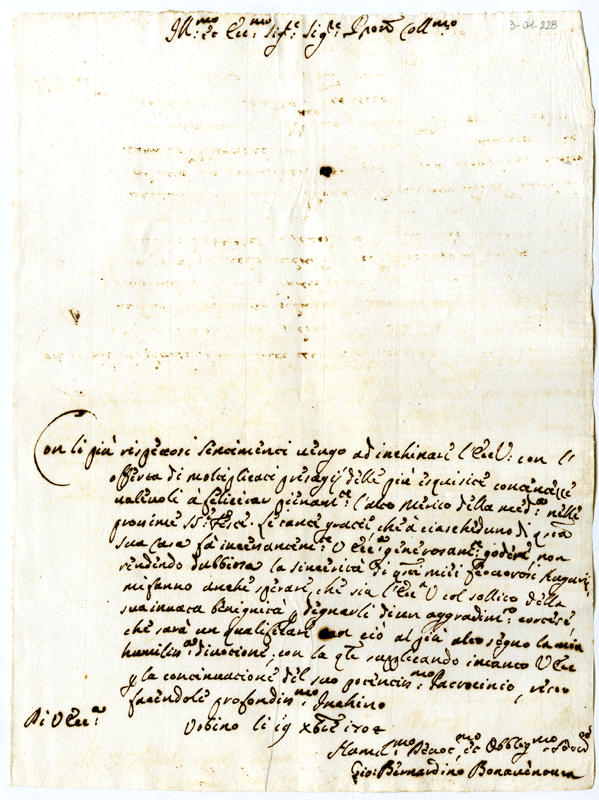 3-01-228
Ill.mo et Ecc.mo Sig.re Sig.re Pron Coll.mo
Con li più rispettosi sentimenti vengo ad inchinare l'Ecc.V: con l'
offerta di moltiplicati presagij delle più esquisite contentezze
valevoli à felicitar pienam.te l'alto merito della med.ma nelle
prossime S.te Feste. Le tante gratie, che à ciascheduno di questa
sua Casa fà incessantem.te V Ecc.a generosam.te godere, non
rendendo dubbiosa la sincerità di questi miei
mi fanno anche sperare, che sia l'Ecc.a V col sollito della
sua innata benignità p degnarli di un aggradim.to cortese,
che sarà un qualificare con ciò al più alto segno la mia
humiliss.ma divotione; con la q.le supplicando intanto V Ecc
p la continuatione del suo potentiss.mo Patrocinio, resto
facendole profondiss.mo Inchino
Di V Ecc.a
Urbino li 19 Xbre 1702
Humil.mo Devot.mo et Obblig.mo
Gio: Bernardino Bonaventura